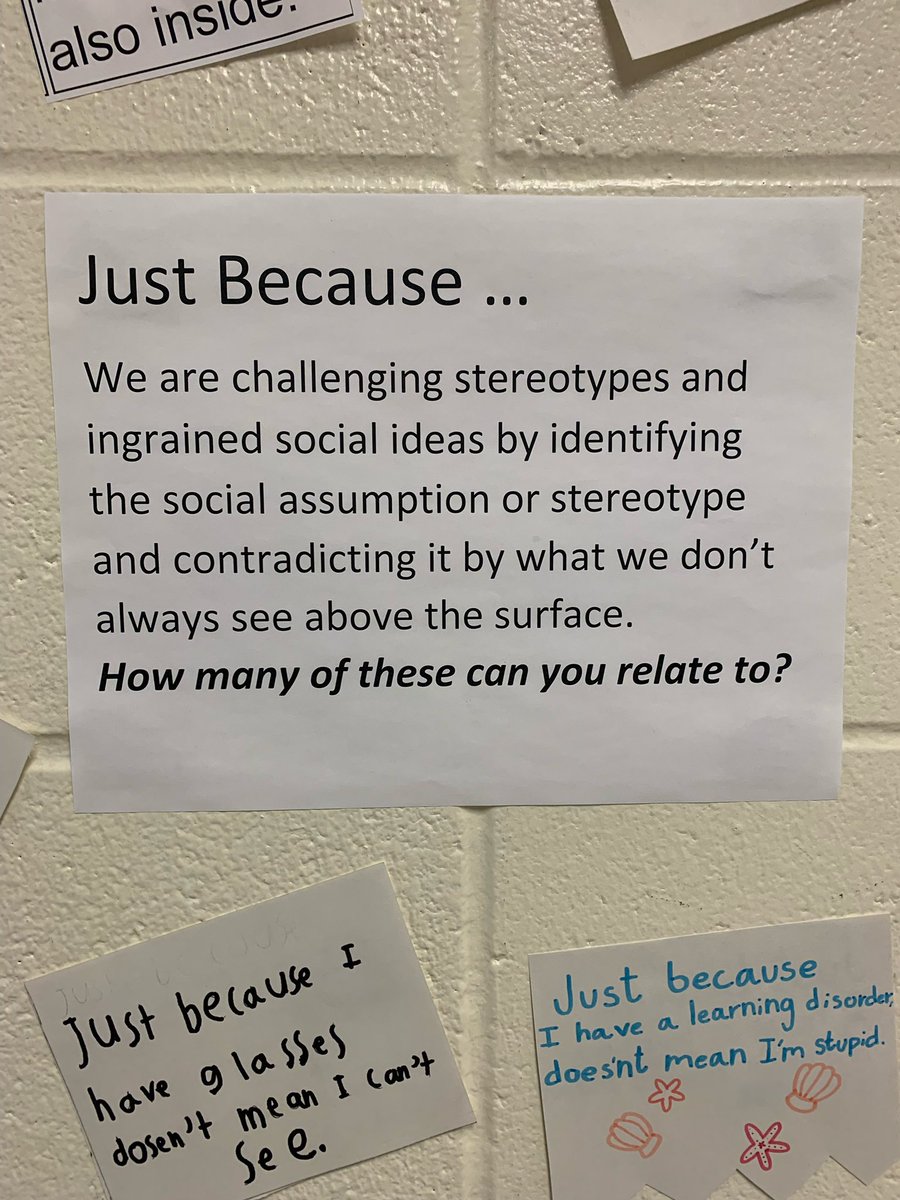 also inside.
Just Because ...
We are challenging stereotypes and
ingrained social ideas by identifying
the social assumption or stereotype
and contradicting it by what we don't
always see above the surface.
How many of these can you relate to?
Just because I
have glasses
dosen't mean I can't
see.
Just because
I have a learning disorder,
does'nt mean I'm stupid.